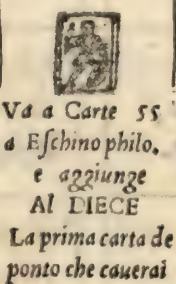 Va a Carte 55
a Eſchino philo,
e aggiunge
Al DIECE
La prima carta de
ponto che cauerai